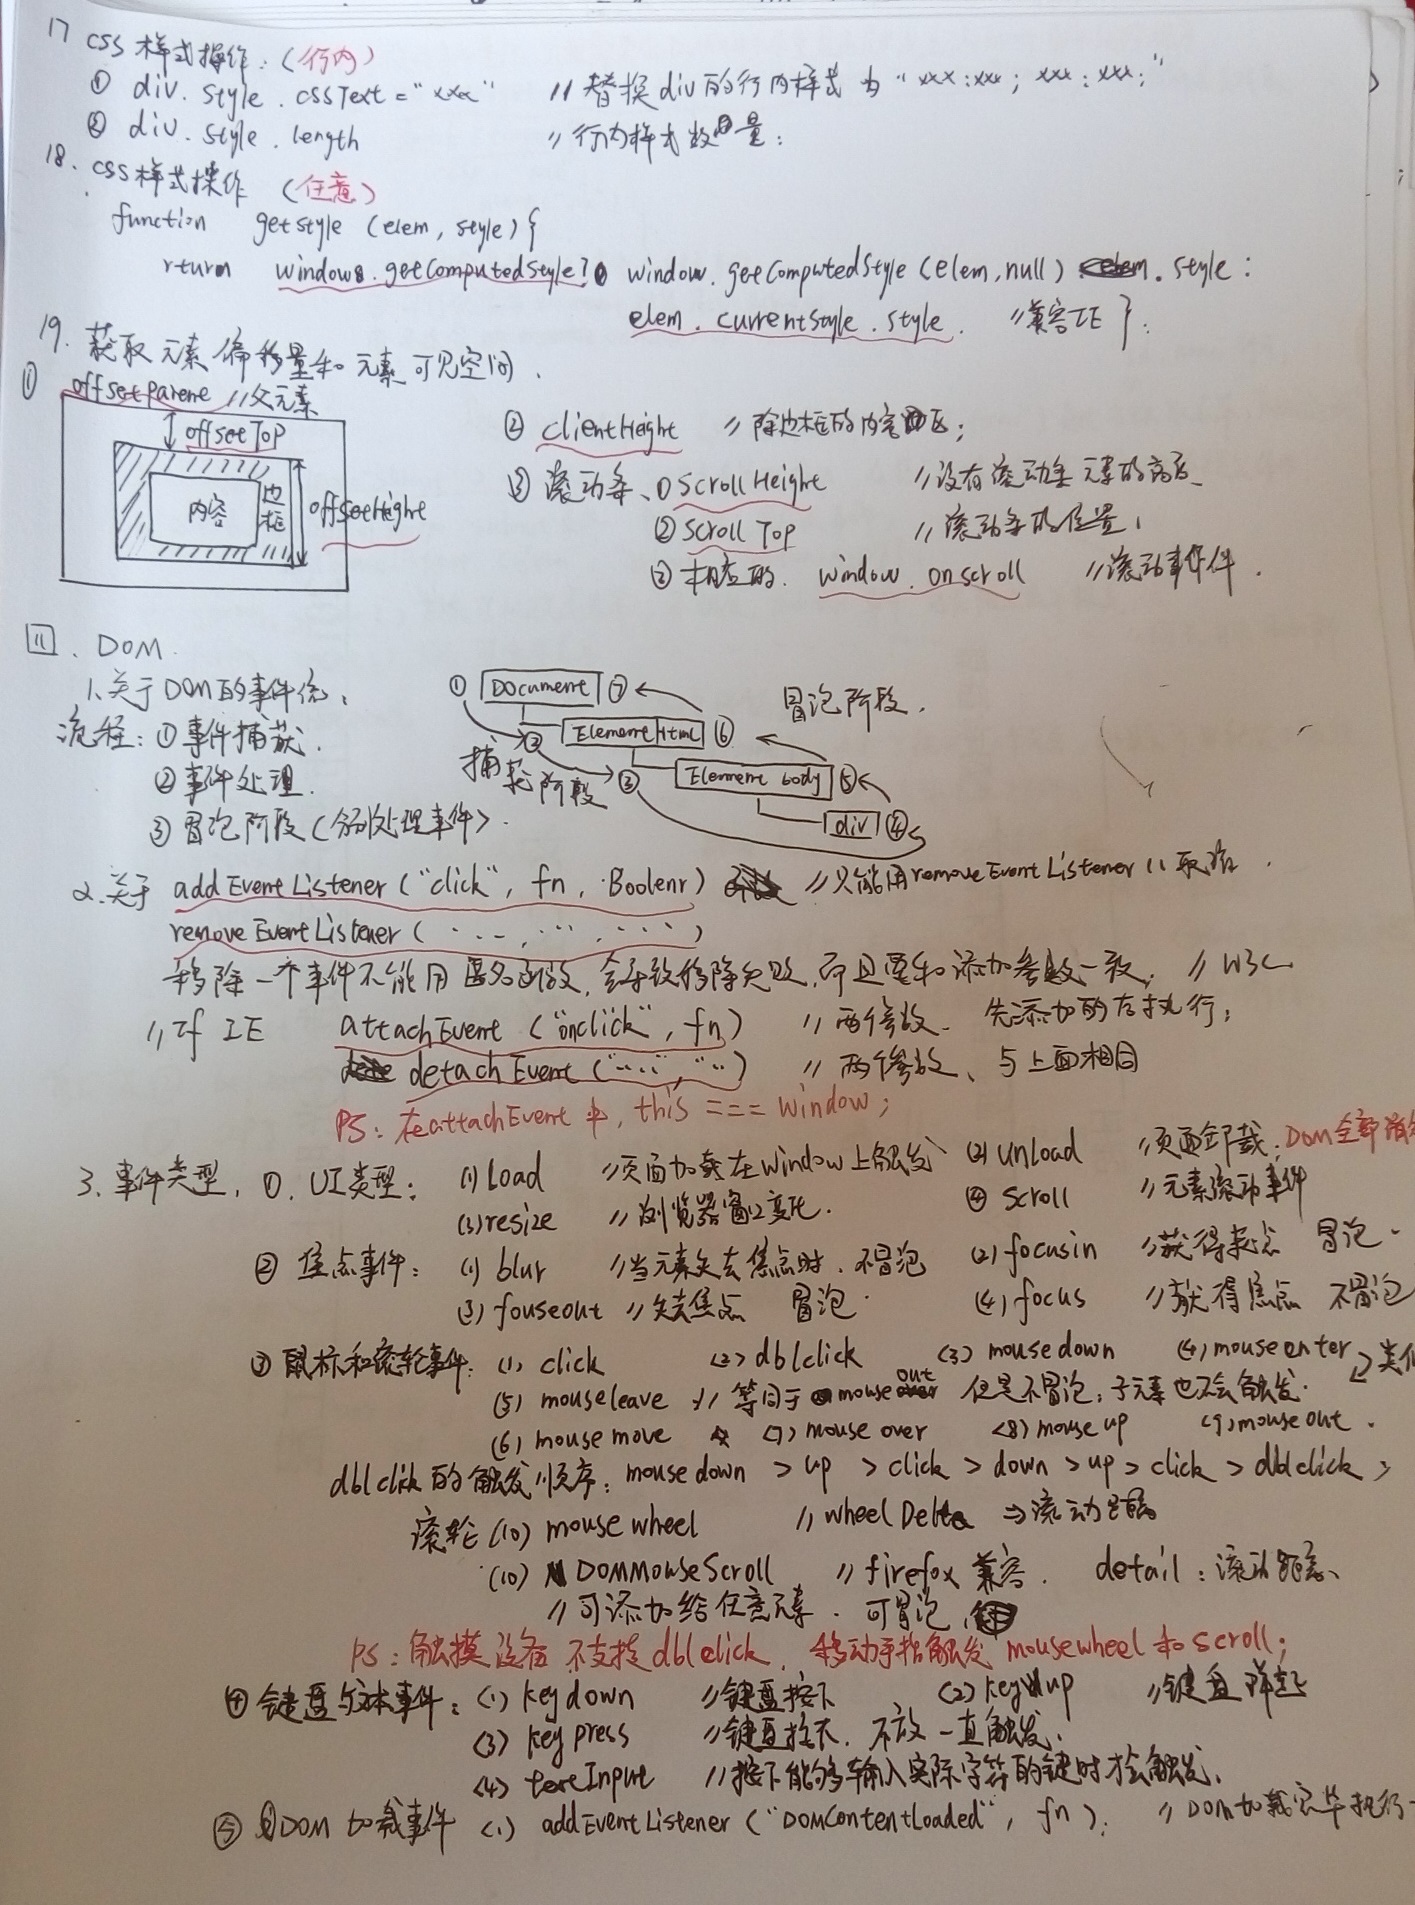 17 css 样式操作:(行内)
① div.style.cssText="xxx" // 替换div的行内样式为"xxx:xxx; xxx:xxx;"
② div.style.length // 行内样式数量;
18. css样式操作 (任意)
function getstyle (elem, style){
rturn windows.getComputedStyle? window.getComputedStyle(elem,null).style:
elem.currentStyle.style. //兼容IE };
19. 获取元素偏移量和元素可见空间.
① offsetParent //父元素
offsetTop
内容
边框
offsetHeight
② clientHeight // 除边框的内容区;
③ 滚动条、① scrollHeight //没有滚动条元素的高度
② scrollTop //滚动条的位置;
③ 相应的. window.onscroll //滚动事件.
四. DOM
1.关于DOM的事件流;
流程:①事件捕获.
②事件处理.
③冒泡阶段(分别处理事件).
① Document ⑦
冒泡阶段.
② Element Html ⑥
捕获阶段
③ Element body ⑤
div ④
2.关于 addEventListener("click", fn, Boolenr) //只能用removeEventListener()取消.
removeEventListener( ...., ..., .....)
移除一个事件不能用匿名函数,会导致移除失败,而且要和添加参数一致; // W3C
//If IE attachEvent ("onclick", fn) //两个参数、先添加的后执行;
detachEvent("....", "..") //两个参数、与上面相同
PS:在attachEvent中,this === window;
3.事件类型, ①.UI类型: (1) load //页面加载在window上触发 (2) unload //页面卸载;DOM全部
(3) resize //浏览器窗口变化. (4) scroll //元素滚动事件
② 焦点事件: (1) blur //当元素失去焦点时.不冒泡 (2) focusin //获得焦点 冒泡.
(3) fouseout //失去焦点 冒泡. (4) focus //获得焦点 不冒泡
③ 鼠标和滚轮事件: (1) click (2) dblclick (3) mousedown (4) mouseenter
(5) mouseleave // 等同于mouseout 但是不冒泡;子元素也不会触发.
(6) mousemove (7) mouseover (8) mouseup (9) mouseout.
dblclick的触发顺序:mousedown > up > click > down > up > click > dblclick;
滚轮 (10) mousewheel // wheelDelta ⇒滚动距离
(10) DOMMouseScroll // firefox 兼容. detail:滚动距离、
//可添加给任意元素.可冒泡
PS:触摸设备不支持dblclick、移动手指触发 mousewheel和scroll;
④ 键盘与文本事件: (1) keydown //键盘按下 (2) keyup //键盘弹起
(3) keypress //键盘按下.不放一直触发、
(4) textInput //按下能够输入实际字符的键时才会触发、
⑤ DOM加载事件 (1) addEventListener("DOMContentLoaded", fn); // DOM加载完毕执行